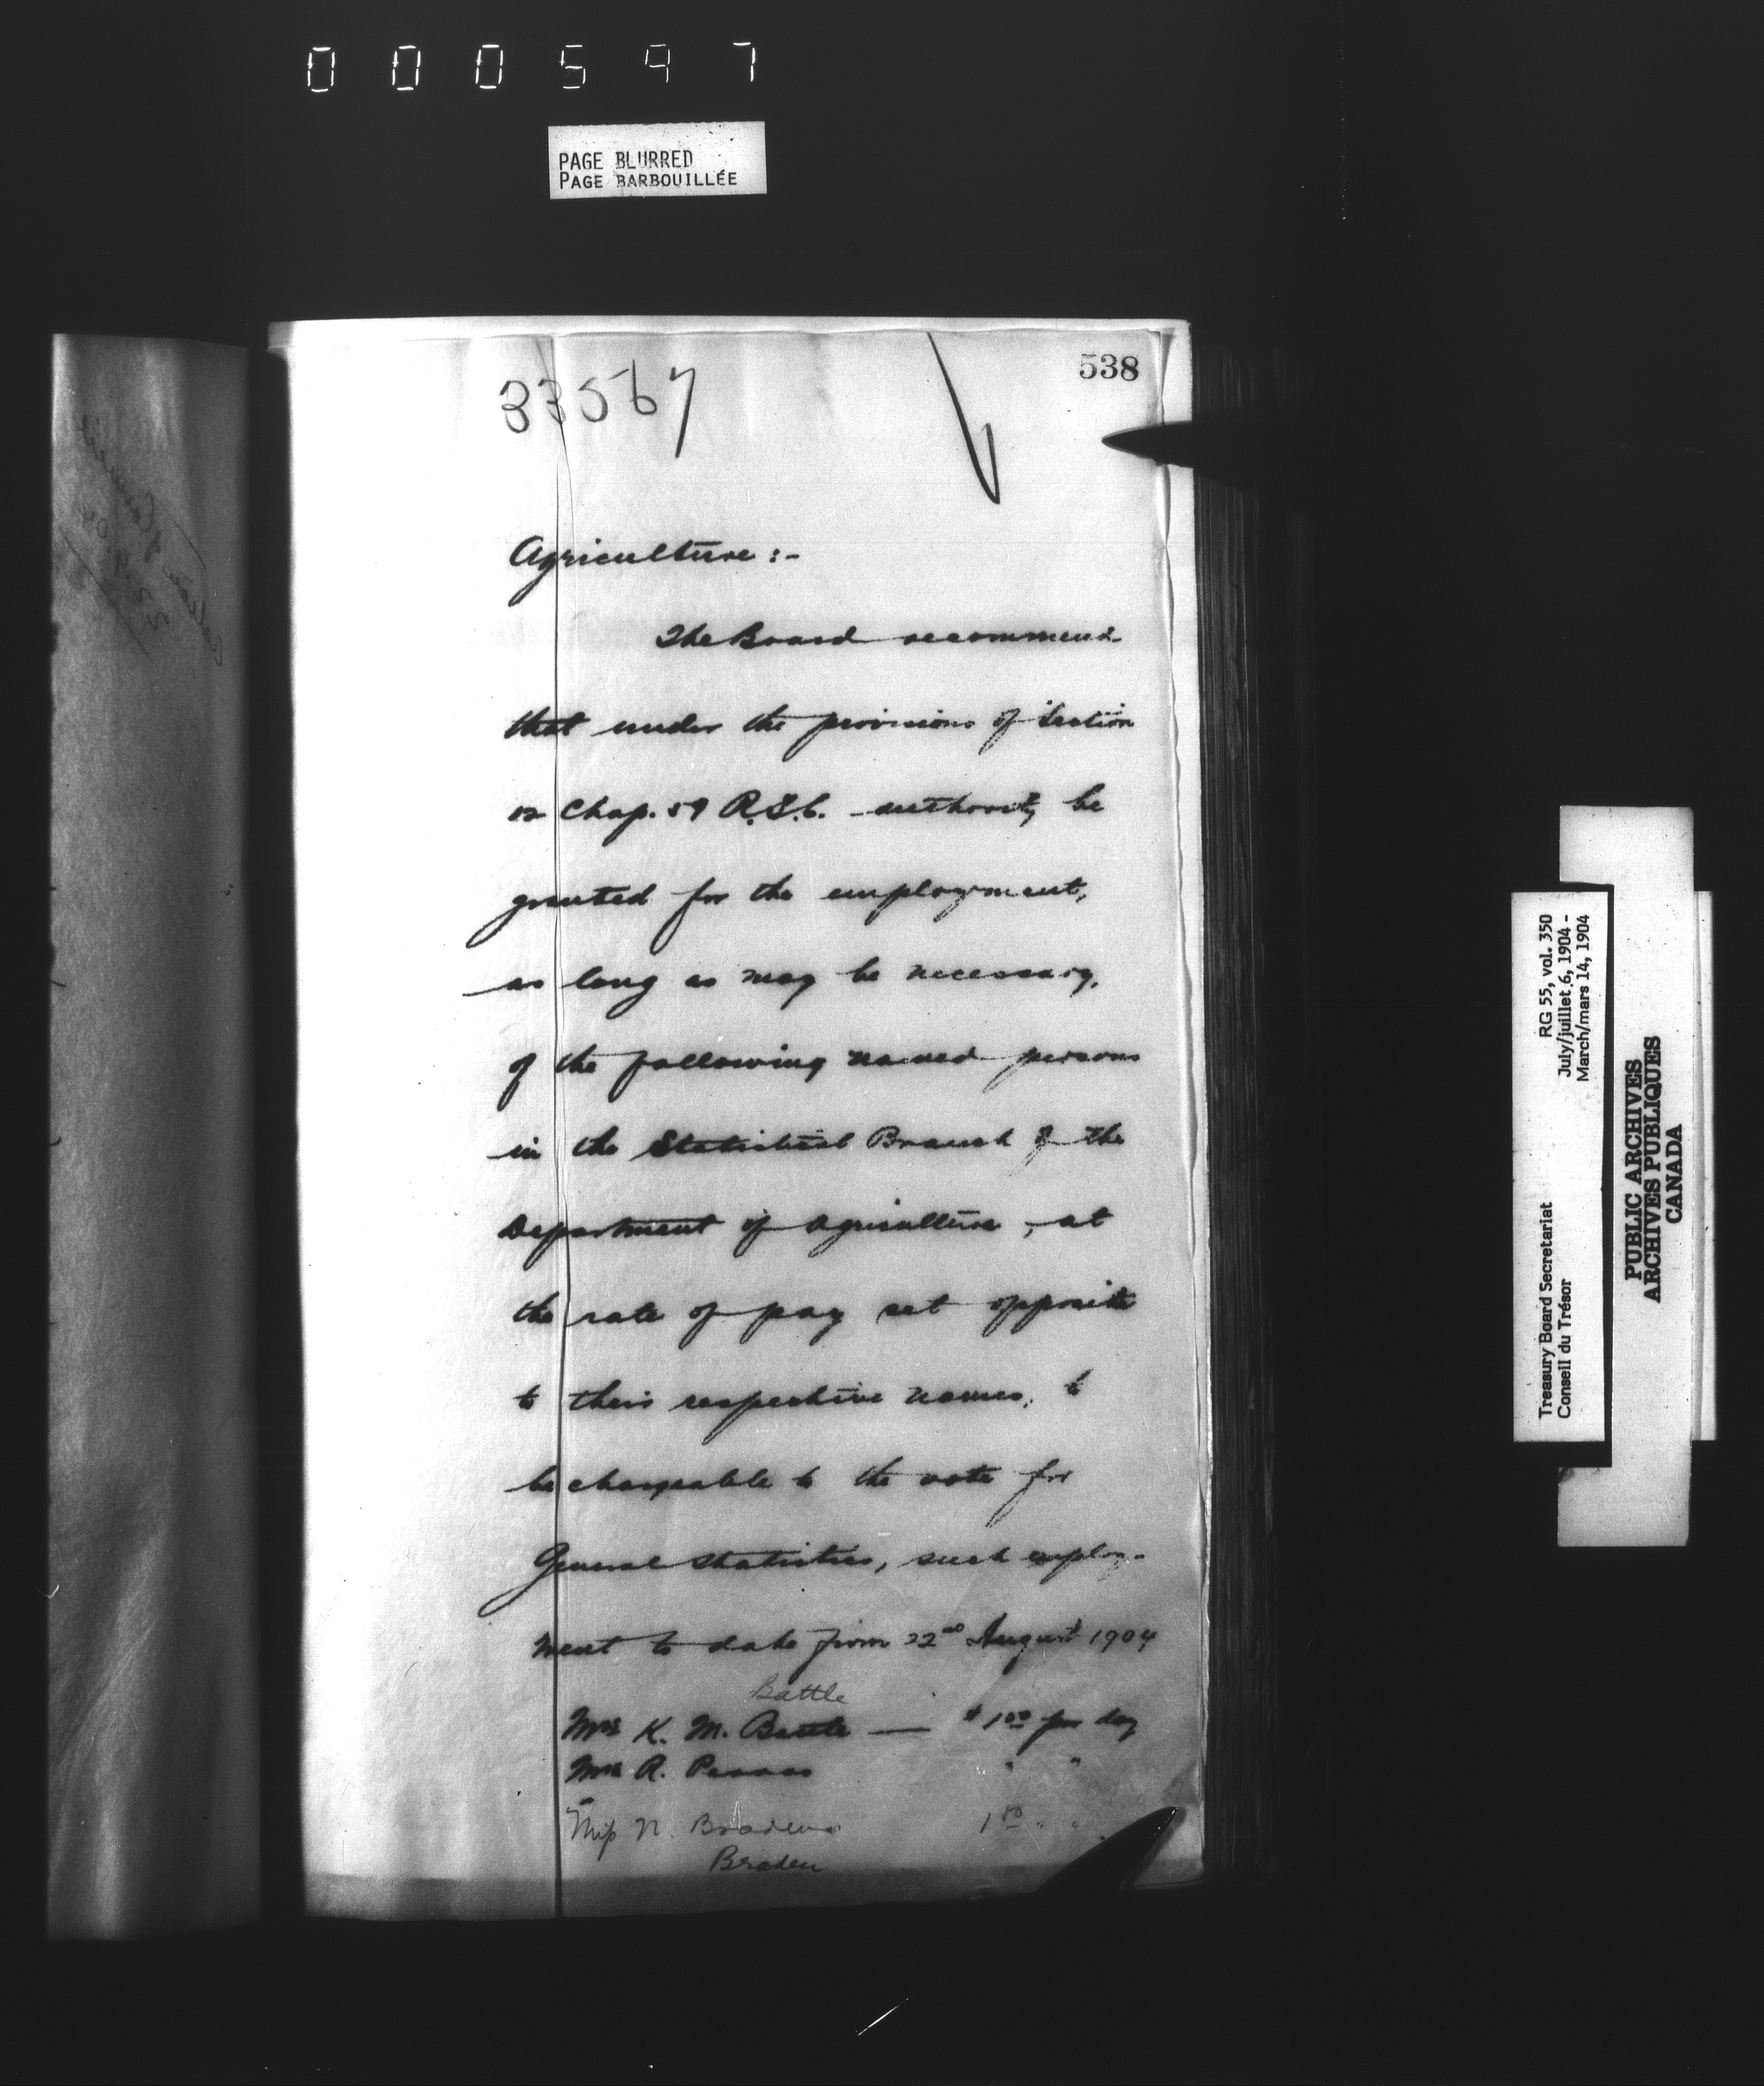 000597
PAGE BLURRED
PAGE BARBOUILLÉE
538
33567
Agriculture :-
The Board recommend
that under the provisions of Section
Chap. 59 R.S.C. authority be
granted for the employment,
as long as may be necessary,
of the following named persons
in the Statistical Branch of the
Department of Agriculture, at
the rate of pay set opposite
to their respective names, to
be chargeable to the vote for
General Statistics, such employ-
ment to date from 22nd August 1904
Battle
Mrs K. M. Battle — $1.50 per day
Mrs R. " "
Miss N. Braden 1.50 " "
Braden
Treasury Board Secretariat RG 55, vol. 350
Conseil du Trésor July/juillet 6, 1904 -
March/mars 14, 1904
PUBLIC ARCHIVES
ARCHIVES PUBLIQUES
CANADA